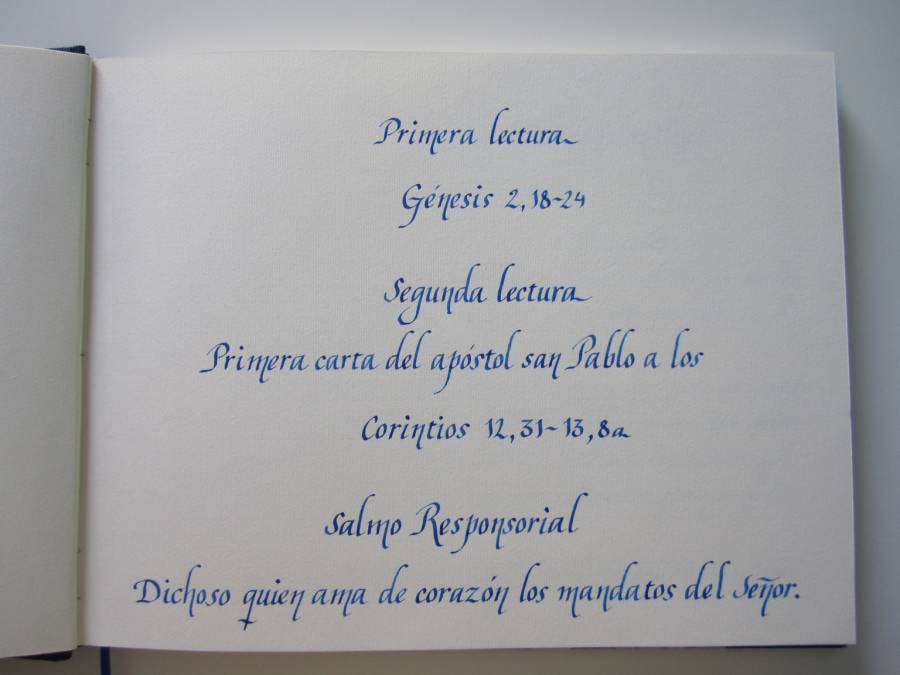 Primera lectura
Génesis 2, 18-24
Segunda lectura
Primera carta del apóstol san Pablo a los
Corintios 12, 31-13, 8a
Salmo Responsorial
Dichoso quien ama de corazón los mandatos del Señor.